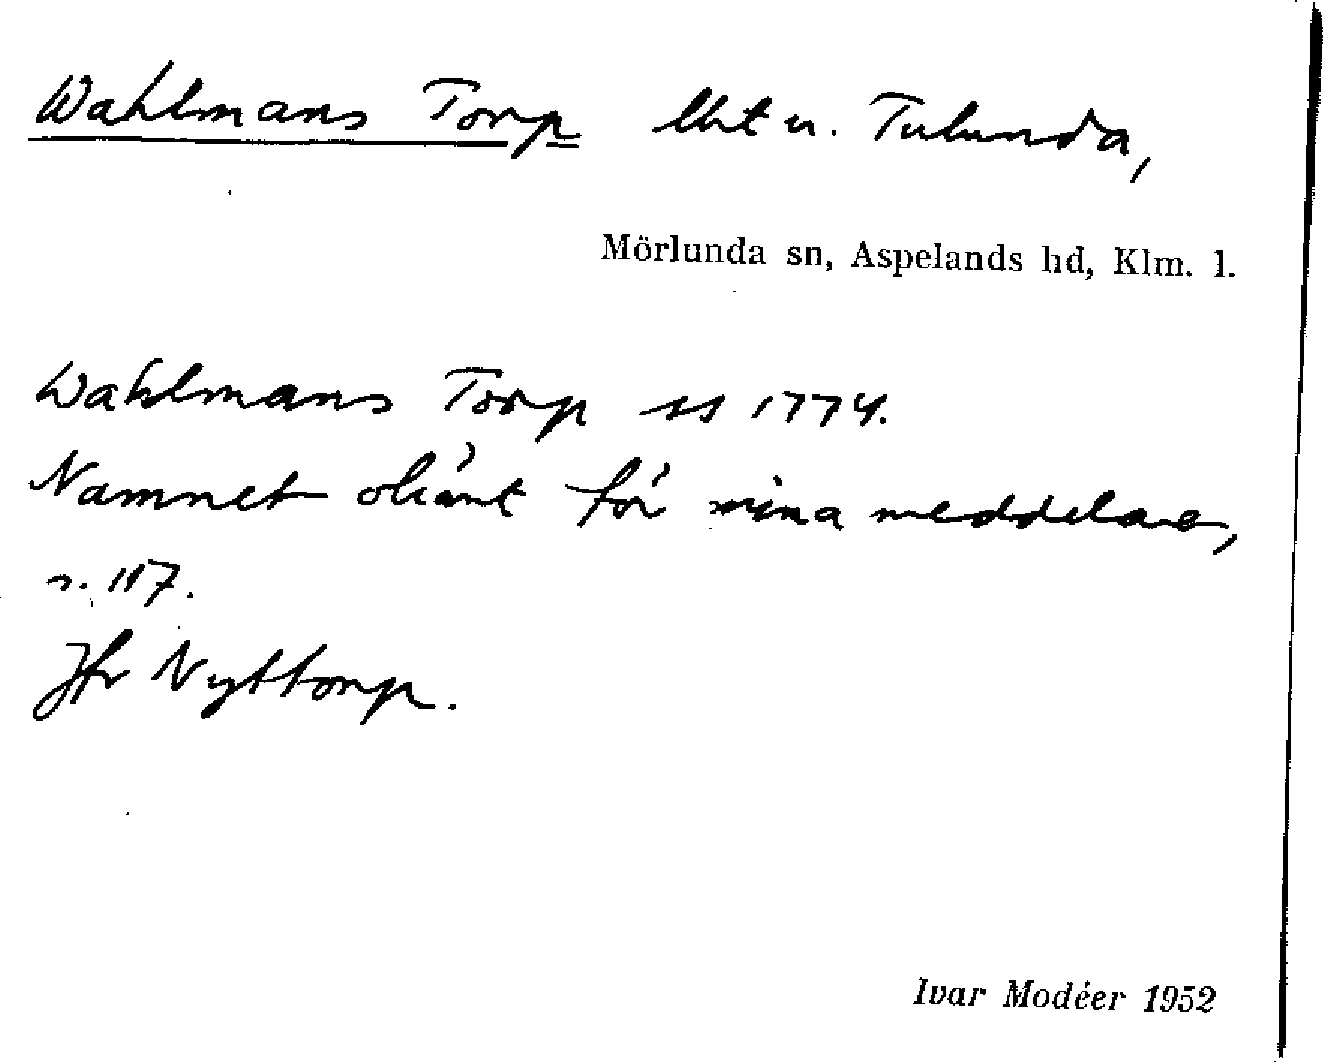 Wahlmans Torp lht u. Tulunda,
Mörlunda sn, Aspelands hd, Klm. l.
Wahlmans Torp ss 1774.
Namnet okänt för mina meddelare,
s. 117.
Jfr Nyttorp.
Ivar Modéer 1952